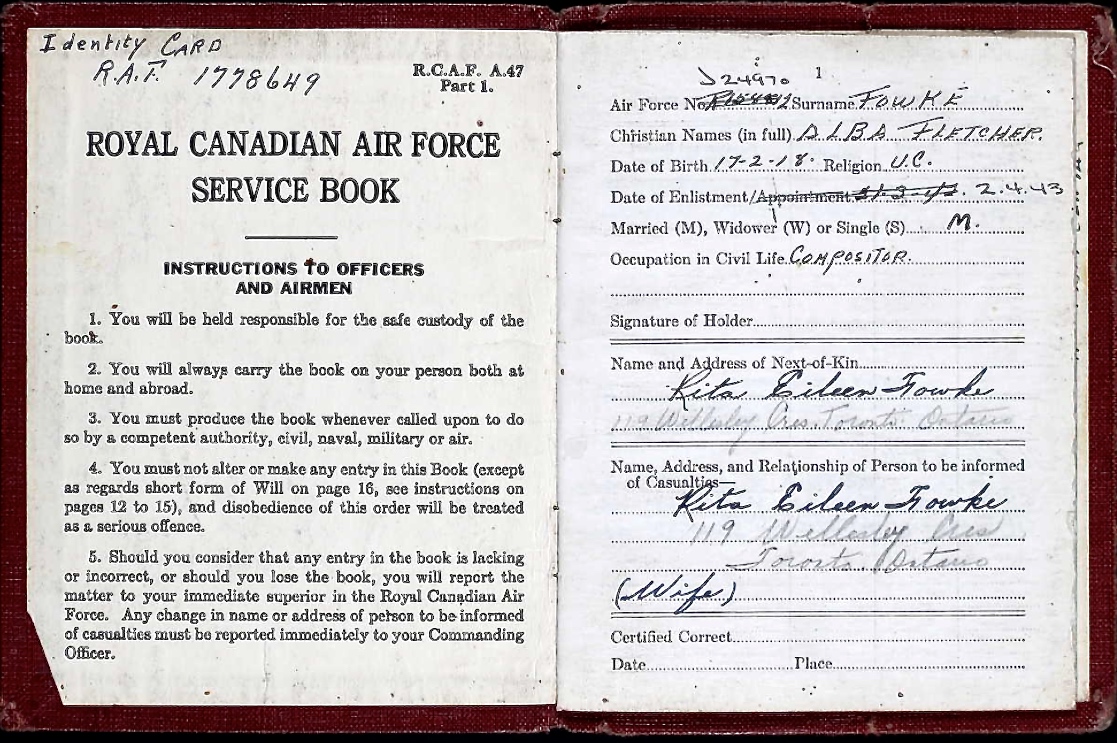 Identity CARD
R.A.F. 1778649
R.C.A.F. A.47
Part 1.
ROYAL CANADIAN AIR FORCE
SERVICE BOOK
INSTRUCTIONS TO OFFICERS
AND AIRMEN
1. You will be held responsible for the safe custody of the
book.
2. You will always carry the book on your person both at
home and abroad.
3. You must produce the book whenever called upon to do
so by a competent authority, civil, naval, military or air.
4. You must not alter or make any entry in this Book (except
as regards short form of Will on page 16, see instructions on
pages 12 to 15), and disobedience of this order will be treated
as a serious offence.
5. Should you consider that any entry in the book is lacking
or incorrect, or should you lose the book, you will report the
matter to your immediate superior in the Royal Canadian Air
Force. Any change in name or address of person to be informed
of casualties must be reported immediately to your Commanding
Officer.
1
J24970
Air Force No. Surname FOWKE
Christian Names (in full) ALBA FLETCHER.
Date of Birth 17-2-18. Religion U.C.
Date of Enlistment/Appointment 2.4.43
Married (M), Widower (W) or Single (S) M.
Occupation in Civil Life COMPOSITOR.
Signature of Holder
Name and Address of Next-of-Kin
Rita Eileen Fowke
119 Wellesley Cres. Toronto Ontario
Name, Address, and Relationship of Person to be informed
of Casualties—
Rita Eileen Fowke
119 Wellesley Cres
Toronto Ontario
(Wife)
Certified Correct
Date Place